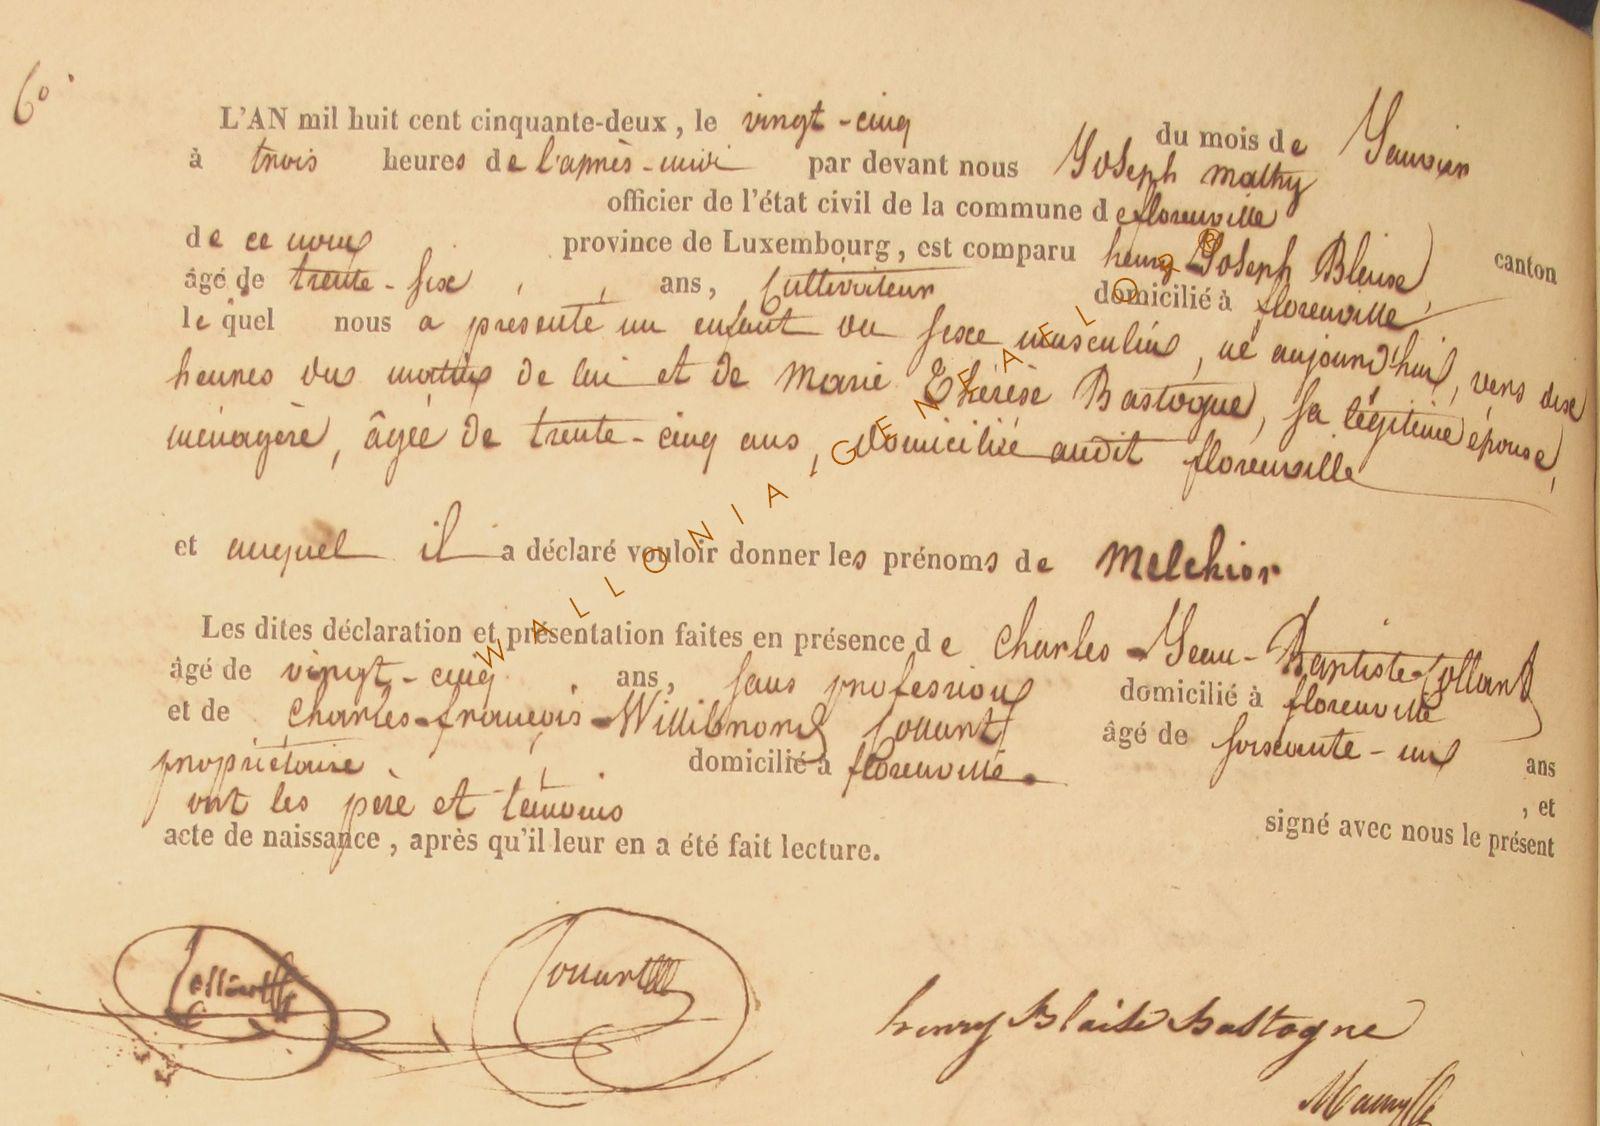 6°
L'AN mil huit cent cinquante-deux, le vingt-cinq du mois de Janvier
à trois heures de l'après-midi par devant nous Joseph mathy
officier de l'état civil de la commune de florenville
canton
de ce nom province de Luxembourg, est comparu henry Joseph Blaise,
âgé de trente-six ans, Cultivateur domicilié à florenville
lequel nous a présenté un enfant du sexe masculin, né aujourd'hui, vers dix
heures du matin de lui et de Marie Thérèse Bastogne, sa légitime épouse,
ménagère, âgée de trente-cinq ans, domiciliée audit florenville
et auquel il a déclaré vouloir donner les prénoms de Melchior
Les dites déclaration et présentation faites en présence de Charles-Jean-Baptiste Collard
âgé de vingt-cinq ans, sans profession domicilié à florenville
et de Charles-françois-Willibrord Couant âgé de soixante-un ans
propriétaire domicilié à florenville.
, et
ont les père et témoins signé avec nous le présent
acte de naissance, après qu'il leur en a été fait lecture.
henry Blaise Bastogne
WALLONIA GENEALOGO®